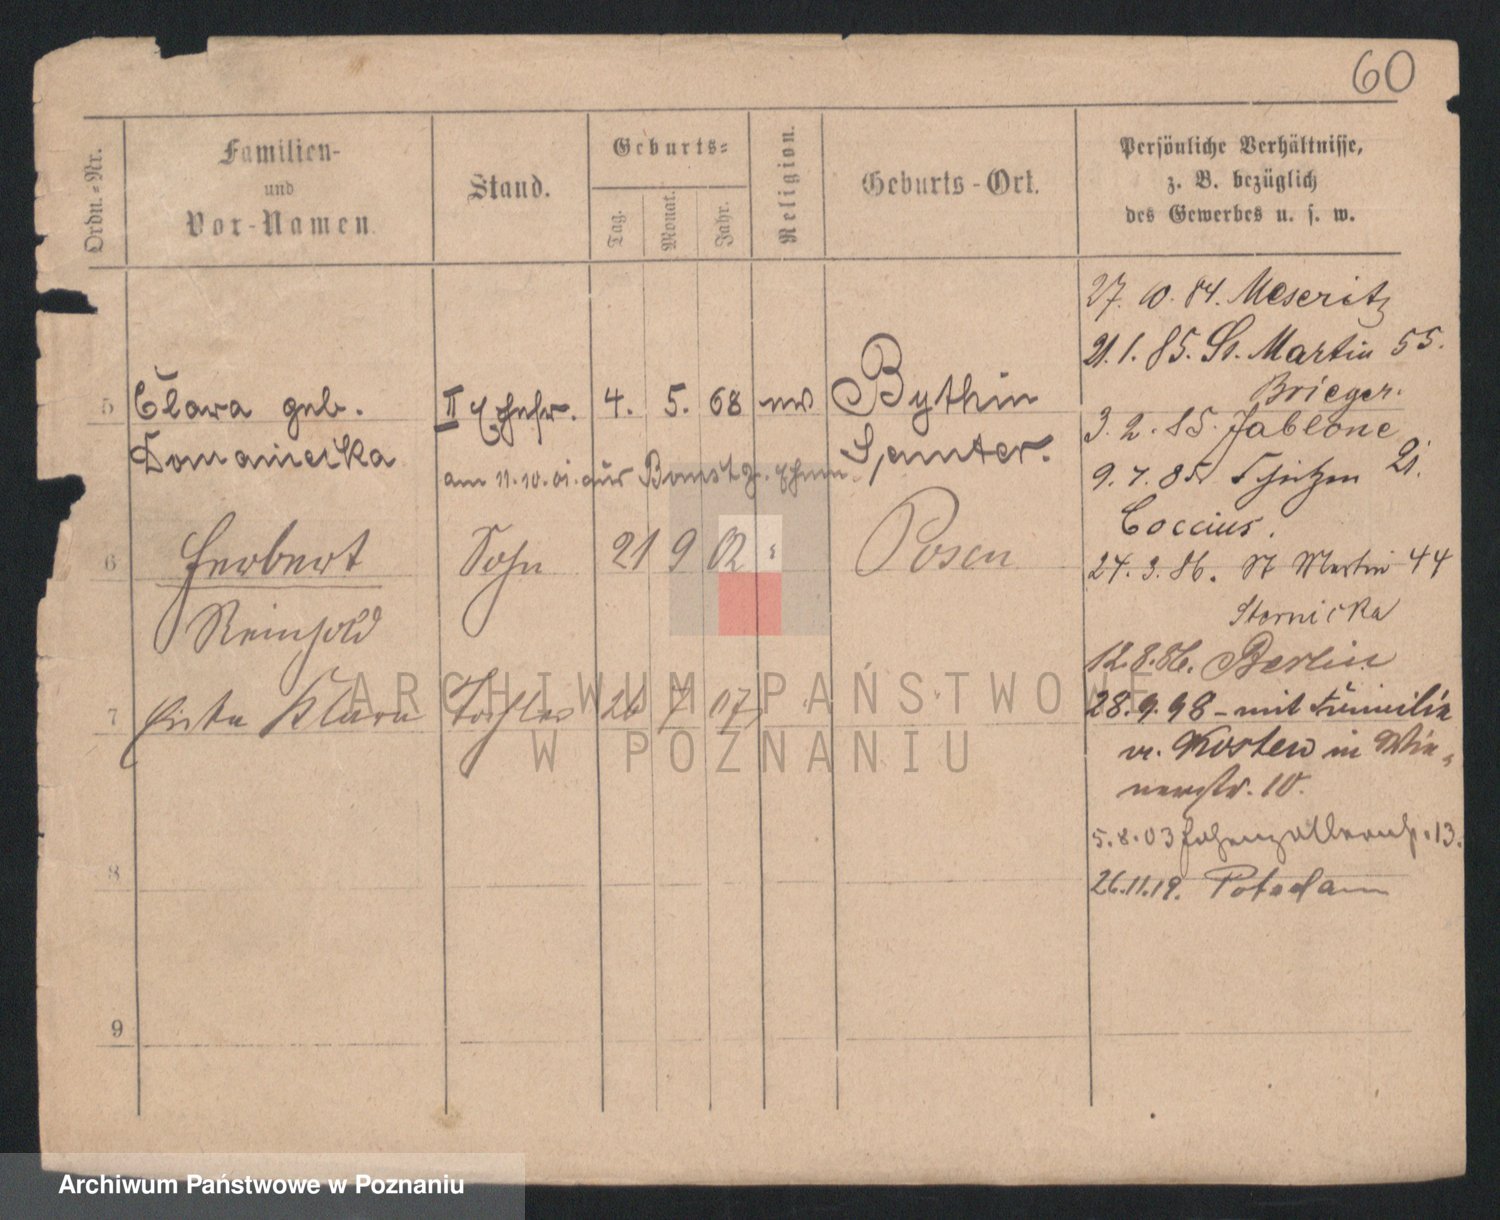 60
Ordn.-Nr.
Familien-
und
Vor-Namen.
Stand.
Geburts-
Tag.
Monat.
Jahr.
Religion.
Geburts-Ort.
Persönliche Verhältnisse,
z. B. bezüglich
des Gewerbes u. s. w.
27. 10. 84. Meseritz
21. 1. 85. St. Martin 55.
Brieger.
5 Clara geb. II Ehefr. 4. 5. 68 Bythin
3. 2. 85. Jablone
Domaniecka Samter.
am 11.10.01. aus Bomst
9. 7. 85 Schützen 21.
Coccius.
6 Herbert Sohn 21 9 02 Posen
24. 3. 86. St Martin 44
Reinhold
Stornicka
12.8.86. Berlin
7 Klara Tochter 26 7 07
28.9.98 - mit Familie
v. Kosten in Wie-
nerstr. 10.
5.8.03 Hohenzollernstr. 13.
8
26.11.19. Potsdam
9
ARCHIWUM PAŃSTWOWE
W POZNANIU
Archiwum Państwowe w Poznaniu